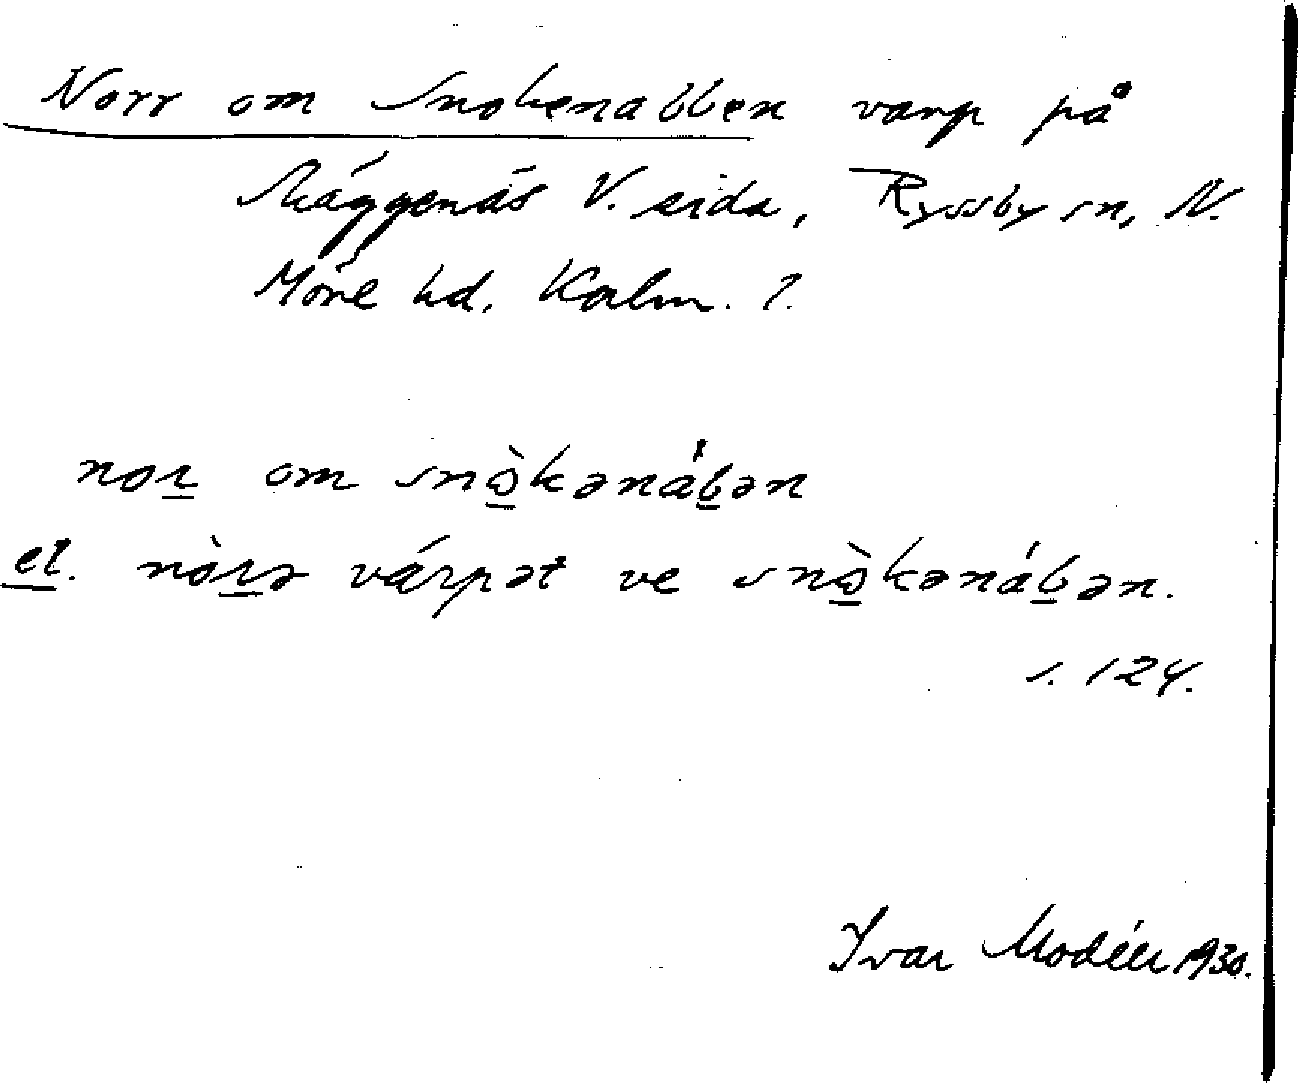 Norr om Snokenabben varp på
Skäggenäs V. sida, Ryssby sn, N.
Möre hd. Kalm. l.
nor̲ om snò̲kənáb̲ən
el. nòr̲ə várpət ve snò̲kənáb̲ən.
s. 124.
Ivar Modéer 1930.